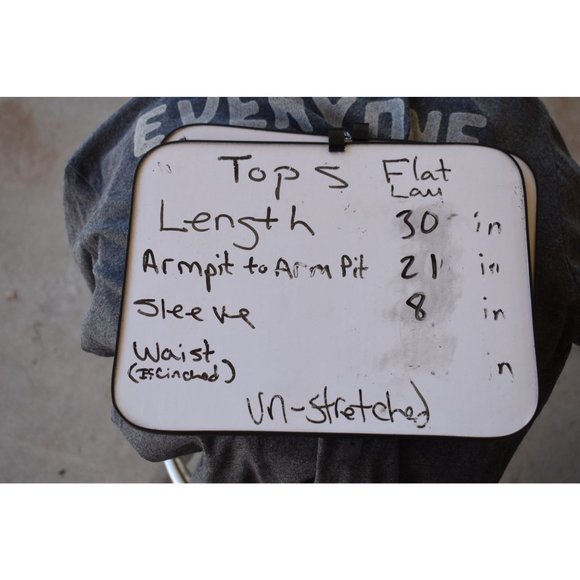 EVERYONE
Tops Flat Lay
Length 30 in
Armpit to Arm Pit 21 in
Sleeve 8 in
Waist in
(If Cinched)
Un-stretched